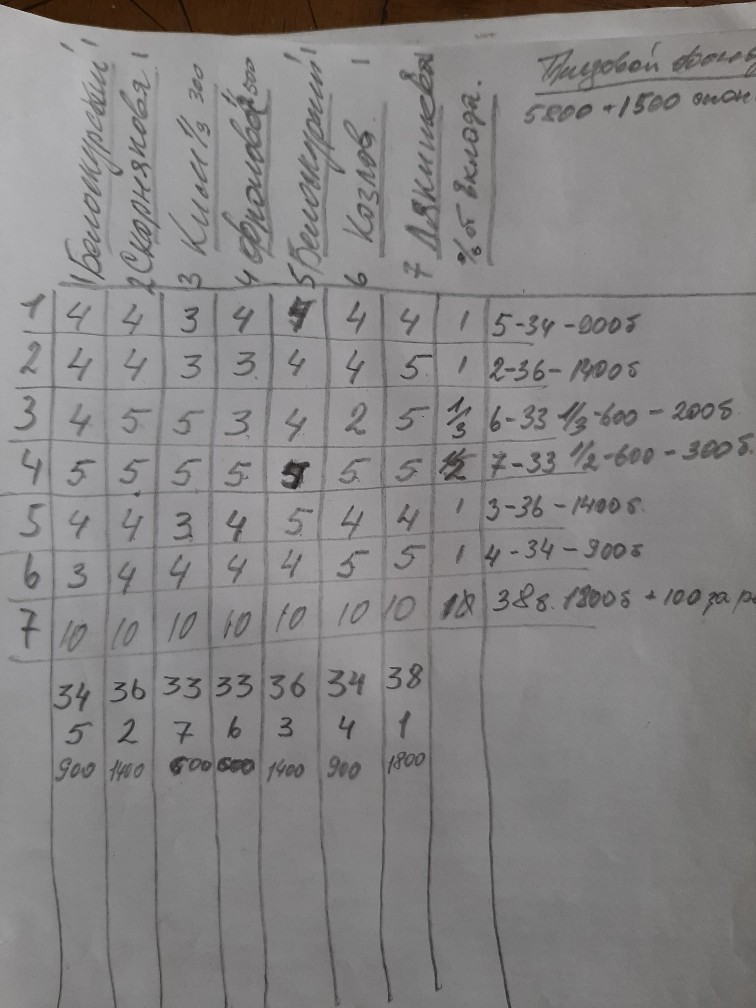 1 Белокурский 1
2 Скорнякова 1
3 Ким 1/3 300
4 Фролова 1/2 500
5 Белокурий 1
6 Козлов 1
7 Лякишева
% от вклада.
Призовой
5800 + 1500
1 4 4 3 4 4 4 4 1 5-34-900б
2 4 4 3 3 4 4 5 1 2-36-1400б
3 4 5 5 3 4 2 5 1/3 6-33 1/3-600-200б
4 5 5 5 5 5 5 5 1/2 7-33 1/2-600-300б.
5 4 4 3 4 5 4 4 1 3-36-1400б
6 3 4 4 4 4 5 5 1 4-34-900б
7 10 10 10 10 10 10 10 38б. 1800б + 100 за
34 36 33 33 36 34 38
5 2 7 6 3 4 1
900 1400 600 600 1400 900 1800